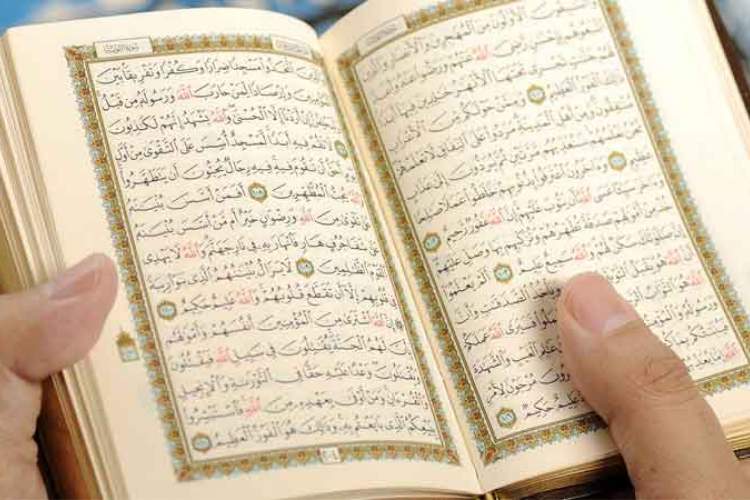 الأولون من المهاجرين والأنصار والذين
اتبعوهم بإحسان رضي الله عنهم ورضوا عنه وأعد
جنات تجري تحتها الأنهار خالدين فيها أبدا
ذلك الفوز العظيم ١٠٠ وممن حولكم من الأعراب
منافقون ومن أهل المدينة مردوا على النفاق لا تعلمهم
نحن نعلمهم سنعذبهم مرتين ثم يردون إلى عذاب
عظيم ١٠١ وآخرون اعترفوا بذنوبهم خلطوا عملا صالحا
وآخر سيئا عسى الله أن يتوب عليهم إن الله غفور رحيم ١٠٢
خذ من أموالهم صدقة تطهرهم وتزكيهم بها وصل عليهم
إن صلاتك سكن لهم والله سميع عليم ١٠٣ ألم يعلموا
أن الله هو يقبل التوبة الصدقات وأن
الله هو التواب اعملوا فسيرى الله عملكم
ورسوله والمؤمنون عالم الغيب والشهادة
فينبئكم بما مرجون لأمر
الله إما يعذبهم عليم حكيم ١٠٦
سورة التوبة
والذين اتخذوا مسجدا ضرارا وكفرا وتفريقا بين
المؤمنين وإرصادا لمن حارب الله ورسوله من قبل
وليحلفن إن أردنا إلا الحسنى والله يشهد إنهم لكاذبون ١٠٧
لا تقم فيه أبدا لمسجد أسس على التقوى من أول
يوم أحق أن تقوم فيه فيه رجال يحبون أن يتطهروا
والله يحب المطهرين ١٠٨ أفمن أسس بنيانه
على تقوى من الله ورضوان خير أم من أسس بنيانه
على شفا جرف هار فانهار به في نار جهنم والله لا يهدي
القوم الظالمين ١٠٩ لا يزال بنيانهم الذي بنوا ريبة
في قلوبهم إلا أن تقطع قلوبهم والله عليم حكيم ١١٠
إن الله اشترى من المؤمنين أنفسهم وأموالهم
بأن لهم الجنة يقاتلون في سبيل الله فيقتلون
ويقتلون وعدا عليه حقا في التوراة والإنجيل
والقرآن ومن أوفى بعهده من الله فاستبشروا
ببيعكم الذي بايعتم به وذلك هو الفوز العظيم ١١١